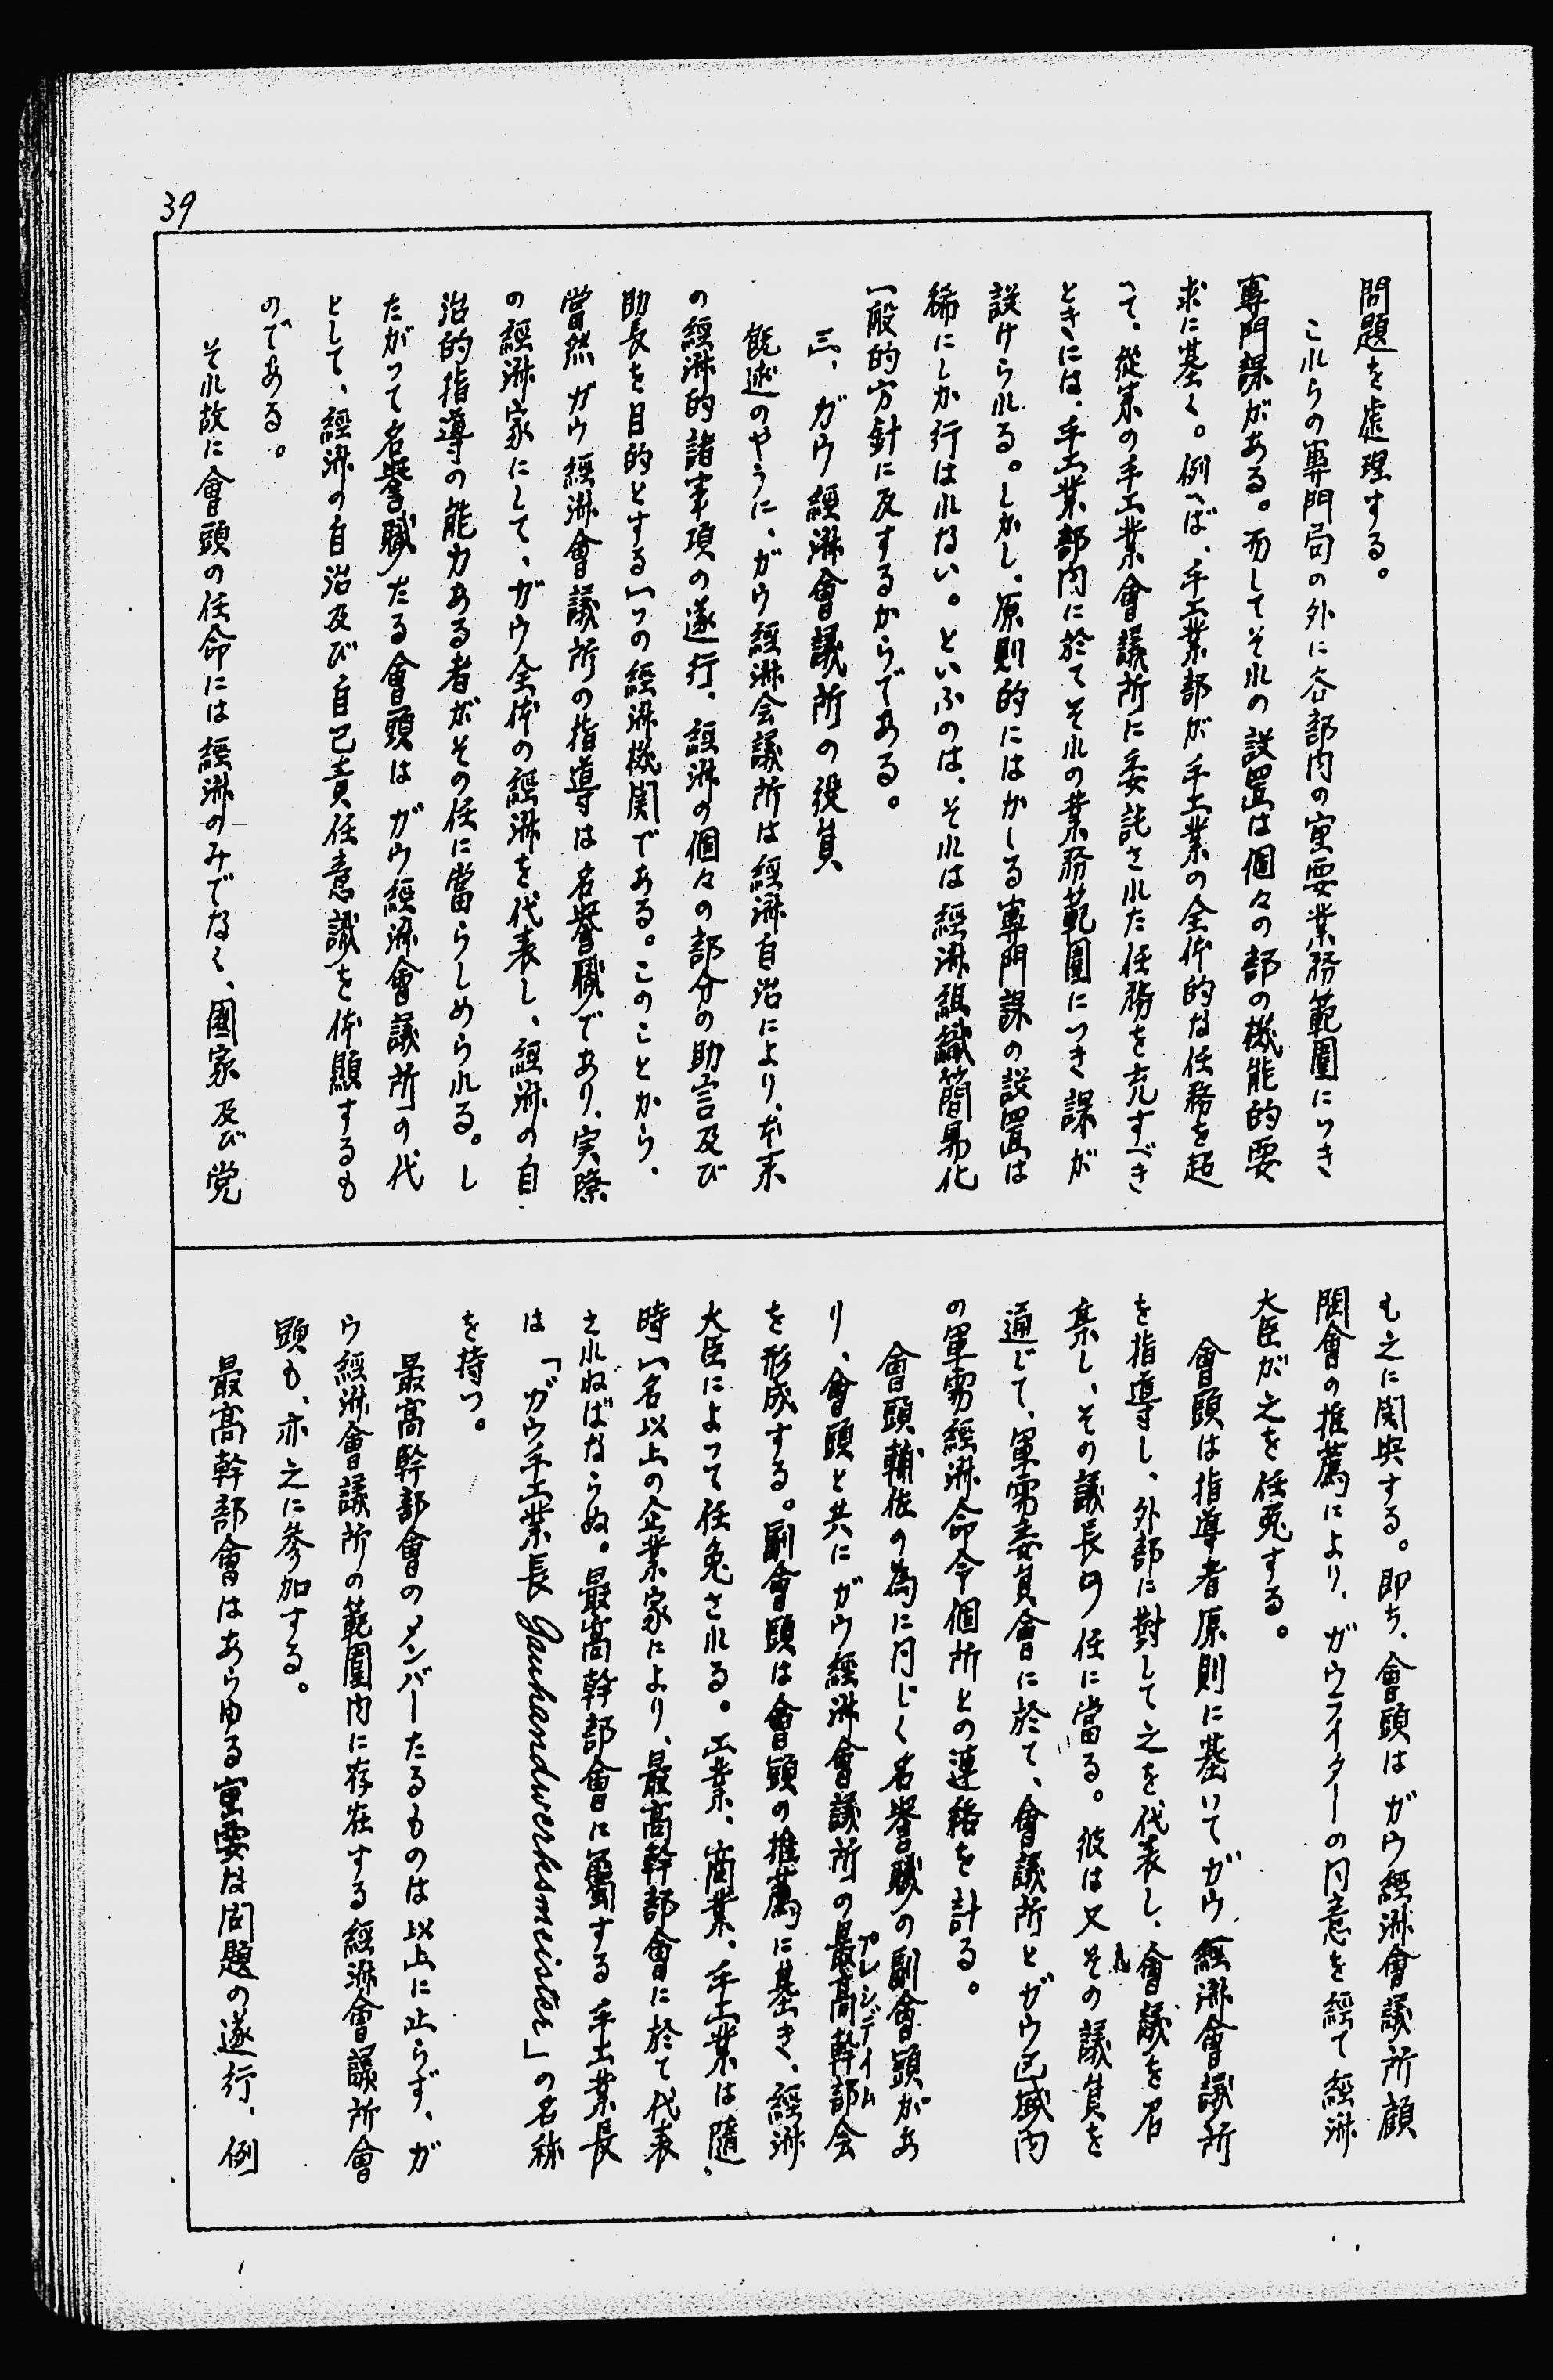 39
問題を處理する。
これらの專門局の外に各部内の重要業務範圍につき
專門課がある。而してそれの設置は個々の部の機能的要
求に基く。例へば、手工業部が手工業の全体的な任務を超
えて、從来の手工業會議所に委託された任務を充すべき
ときには、手工業部内に於てそれの業務範圍につき課が
設けられる。しかし、原則的にはかゝる專門課の設置は
稀にしか行はれない。といふのは、それは經濟組織簡易化
一般的方針に反するからである。
三、ガウ經濟會議所の役員
既述のやうに、ガウ經濟会議所は經濟自治により、本来
の經濟的諸事項の遂行、經濟の個々の部分の助言及び
助長を目的とする一つの經濟機関である。このことから、
當然ガウ經濟會議所の指導は名譽職であり、実際
の經濟家にして、ガウ全体の經濟を代表し、經濟の自
治的指導の能力ある者がその任に當らしめられる。し
たがつて名譽職たる會頭はガウ經濟會議所の代
として、經濟の自治及び自己責任意識を体顯するも
のである。
それ故に會頭の任命には經濟のみでなく、國家及び党
も之に関與する。即ち、會頭はガウ經濟會議所顧
問會の推薦により、ガウライターの同意を經て經濟
大臣が之を任免する。
會頭は指導者原則に基いてガウ經濟會議所
を指導し、外部に對して之を代表し、會議を召
集し、その議長の任に當る。彼は又その議員を
通じて、軍需委員會に於て、會議所とガウ區域内
の軍需經濟命令個所との連絡を計る。
會頭輔佐の為に同じく名譽職の副會頭があ
り、會頭と共にガウ經濟會議所の最高幹部会
プレシデイム
を形成する。副會頭は會頭の推薦に基き、經濟
大臣によつて任免される。工業、商業、手工業は隨
時一名以上の企業家により、最高幹部會に於て代表
されねばならぬ。最高幹部會に屬する手工業長
は「ガウ手工業長 Gauhandwerksmeister」の名称
を持つ。
最高幹部會のメンバーたるものは以上に止らず、ガ
ウ經濟會議所の範圍内に存在する經濟會議所會
頭も、亦之に參加する。
最高幹部會はあらゆる重要な問題の遂行、例